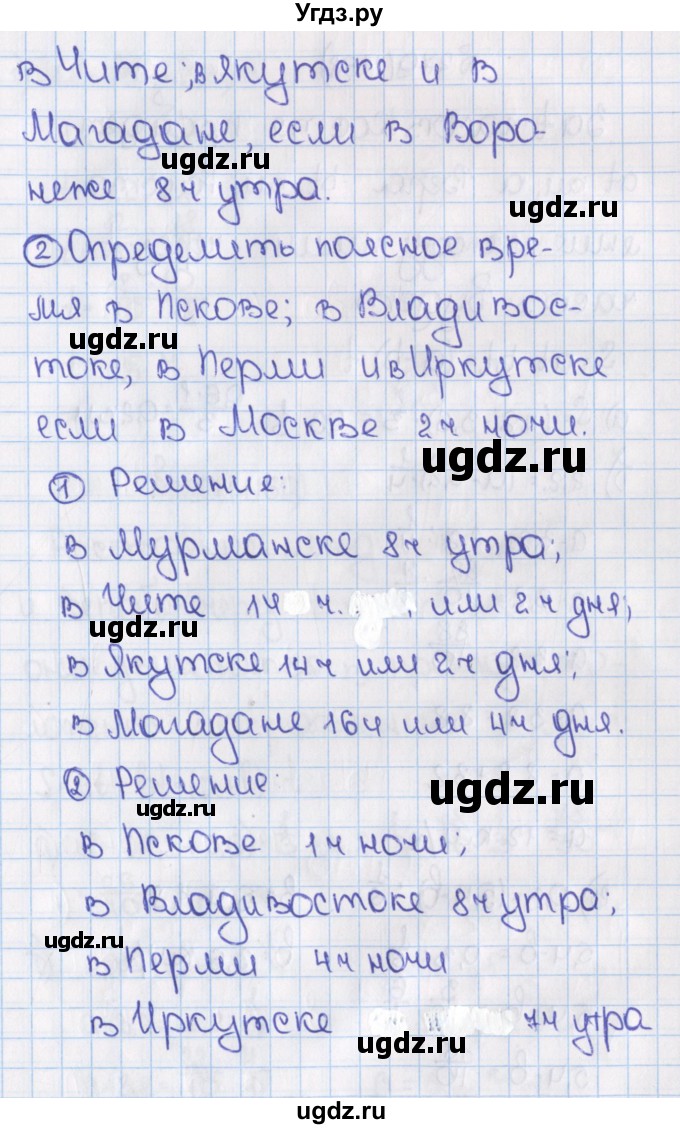 Угдз.ру
в Чите; в Якутске и в
Магадане, если в Воро-
ugdz.ru
неже 8 ч утра.
ugdz.ru
② Определить поясное вре-
мя в Пскове; в Владивос-
ugdz.ru
токе, в Перми и в Иркутске
если в Москве 2 ч ночи.
ugdz.ru
① Решение:
в Мурманске 8 ч утра;
в Чите 14 ч. , или 2 ч дня;
ugdz.ru
в Якутске 14 ч или 2 ч дня;
в Магадане 16 ч или 4 ч дня.
② Решение:
ugdz.ru
ugdz.ru
в Пскове 1 ч ночи;
в Владивостоке 8 ч утра;
ugdz.ru
в Перми 4 ч ночи
в Иркутске 7 ч утра
ugdz.ru
ugdz.ru